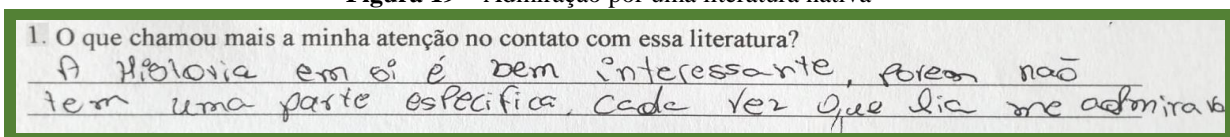 Figura 19 – Admiração por uma literatura nativa
1. O que chamou mais a minha atenção no contato com essa literatura?
A Historia em si é bem interessante, porem naõ
tem uma parte especifica, cada vez que lia me admirava